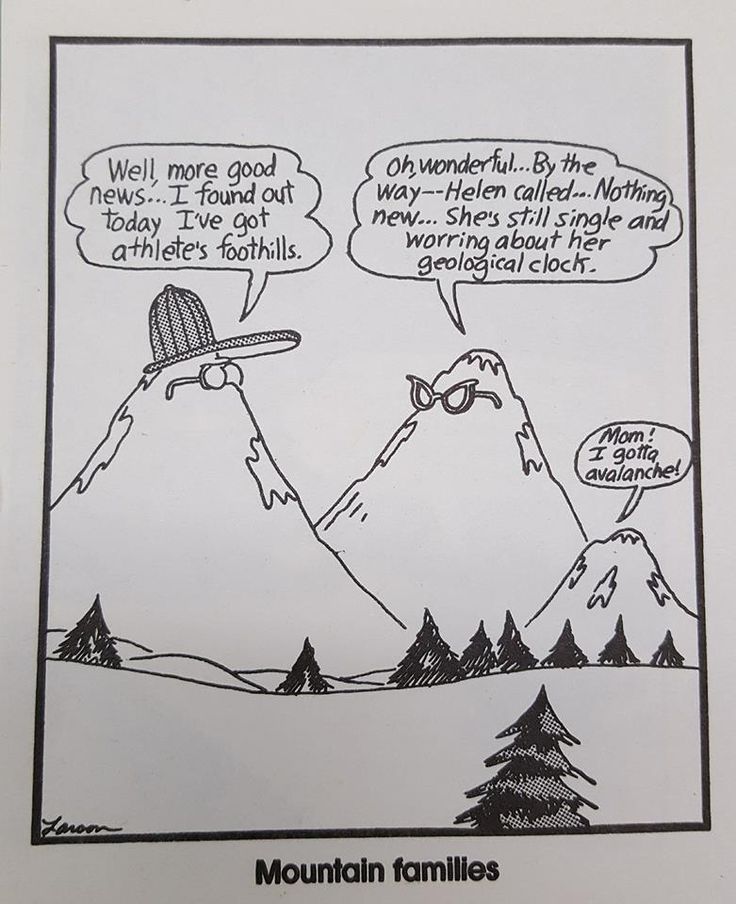 Well, more good
news... I found out
today I've got
athlete's foothills.
Oh, wonderful... By the
way--Helen called... Nothing
new... She's still single and
worring about her
geological clock.
Mom!
I gotta
avalanche!
Larson
Mountain families